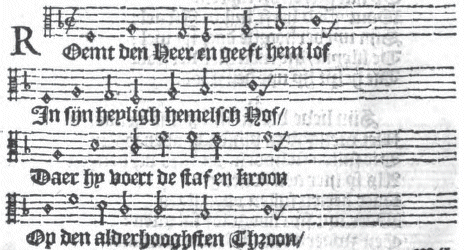 ROemt den Heer en geeft hem lof
In sijn heyligh hemelsch Hof/
Daer hy voert de staf en kroon
Op den alderhooghsten Throon/